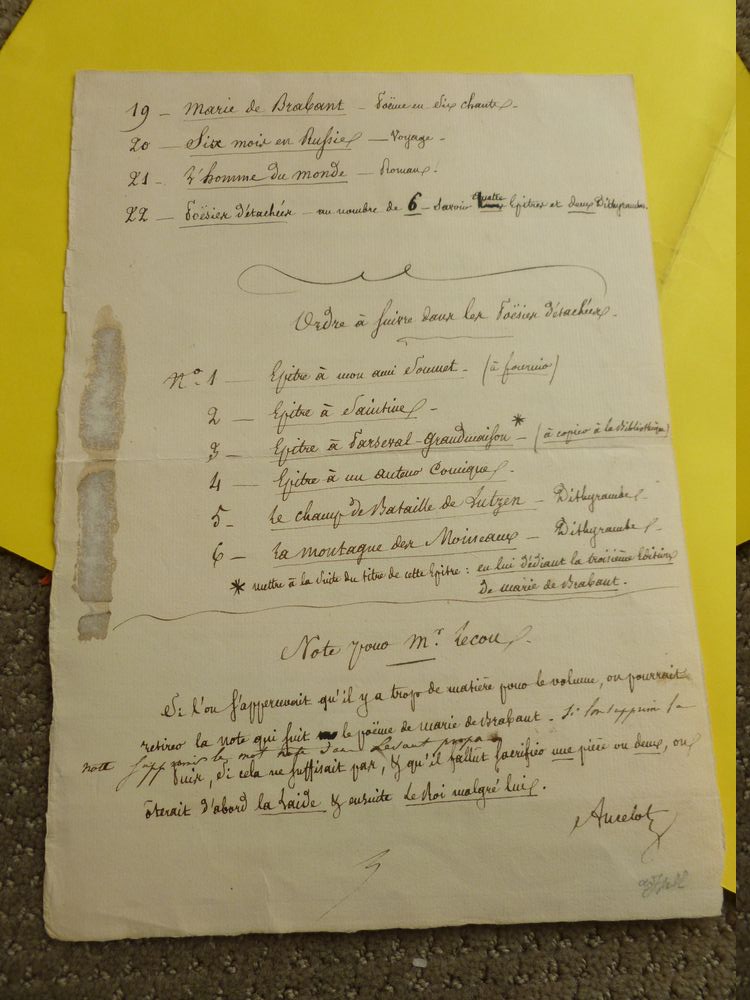 19 — Marie de Brabant — Poëme en Six chants.
20 — Six mois en Russie — Voyage.
21 — L'homme du monde — Roman.
22 — Poësies détachées — au nombre de 6 — Savoir quatre Epitres et deux Dithyrambes.
Ordre à suivre dans les Poësies détachées.
N.º 1 — Epitre à mon ami Soumet. (à fournir)
2 — Epitre à Saintine.
3 — Epitre à Parseval-Grandmaison * — (à copier à la Bibliothèque)
4 — Epitre à un auteur Comique.
5 — Le champ de Bataille de Lutzen — Dithyrambe.
6 — La montagne des Moineaux — Dithyrambe.
* mettre à la Suite du titre de cette Epitre : en lui dédiant la troisième Edition
de marie de Brabant.
Note pour Mr. Lecou.
Si l'on s'appercevoit qu'il y a trop de matière pour le volume, on pourrait
retirer la note qui suit le poëme de marie de Brabant. Si l'on supprime la
note
Puis, Si cela ne suffisait pas, & qu'il fallut Sacrifier une pièce ou deux, on
ôterait d'abord la Laide & ensuite Le Roi malgré lui.
Ancelot